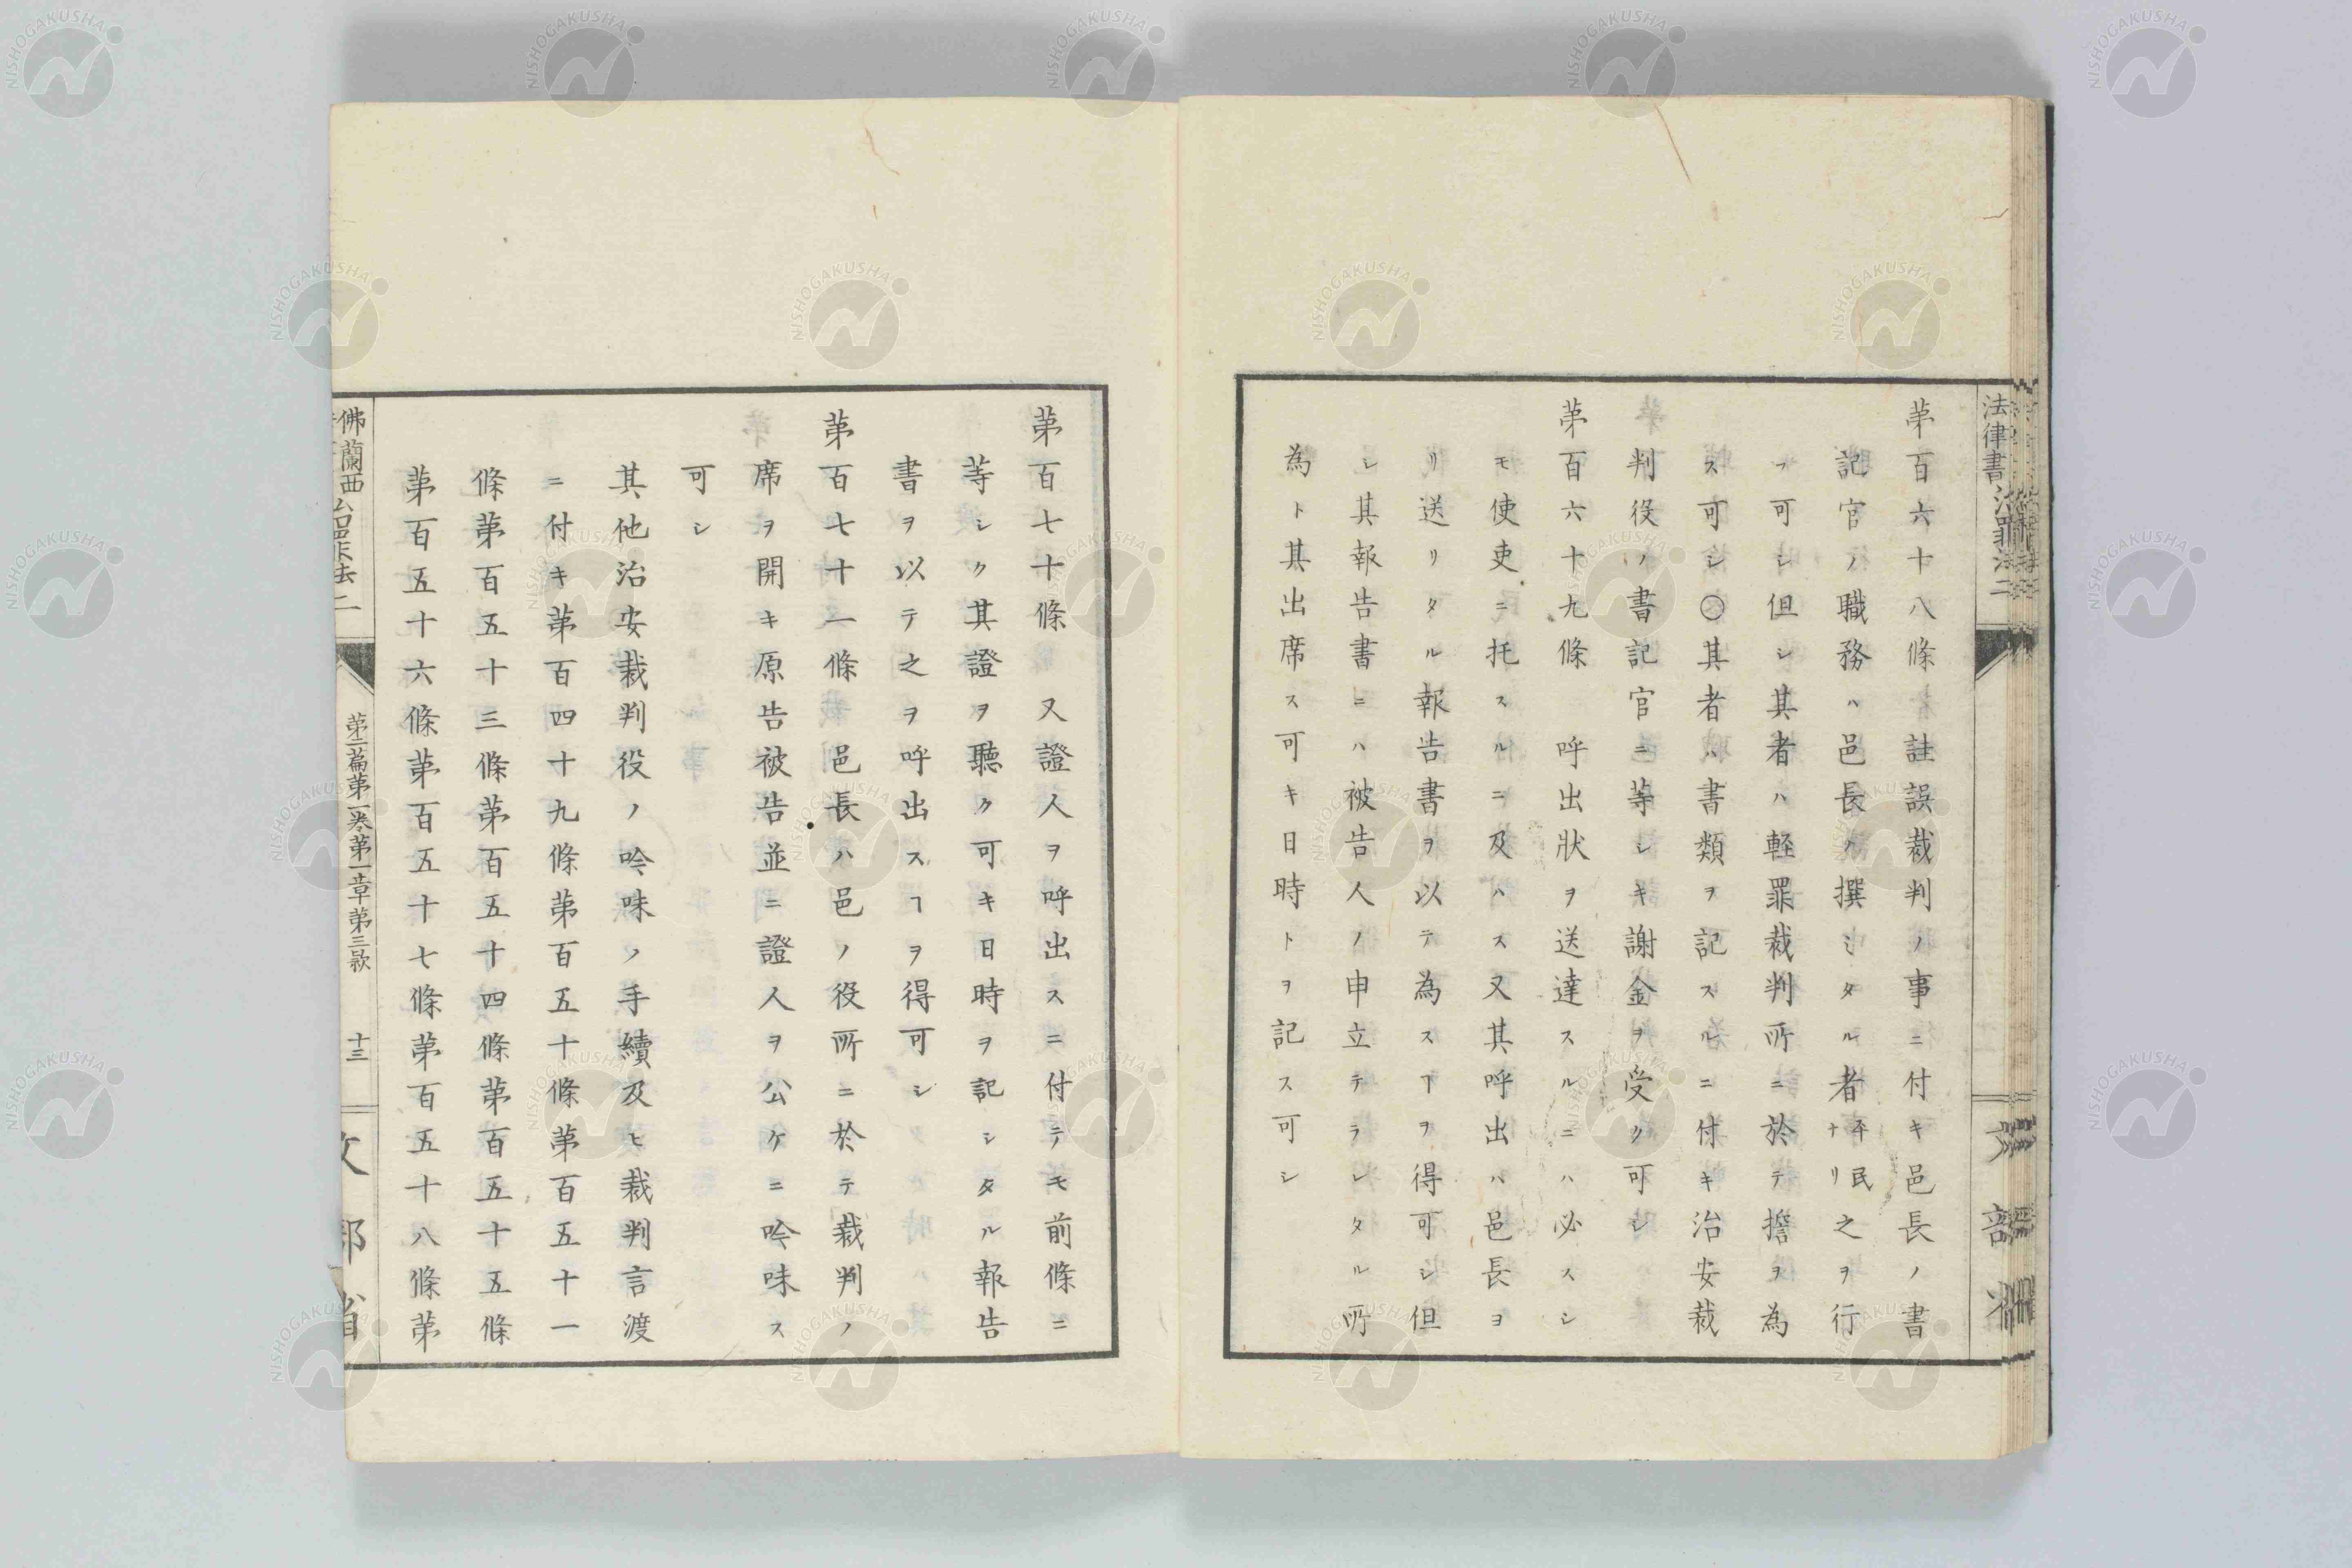 第百六十八條　註誤裁判ノ事ニ付キ邑長ノ書
記官ノ職務ハ邑長ノ撰ミタル者平民ナリ之ヲ行
フ可シ但シ其者ハ軽罪裁判所ニ於テ擔ヲ為
ス可シ〇其者ハ書類ヲ記スルニ付キ治安裁
判役ノ書記官ニ等シキ謝金ヲ受ク可シ
第百六十九條　呼出狀ヲ送達スルニハ必スシ
モ使吏ニ托スルニ及ハス又其呼出ハ邑長ヨ
リ送リタル報告書ヲ以テ為スヿヲ得可シ但
シ其報告書ニハ被告人ノ申立テラレタル所
為ト其出席ス可キ日時トヲ記ス可シ
第百七十條　又證人ヲ呼出スニ付テモ前條ニ
等シク其證ヲ聽ク可キ日時ヲ記シタル報告
書ヲ以テ之ヲ呼出スヿヲ得可シ
第百七十一條　邑長ハ邑ノ役所ニ於テ裁判ノ
席ヲ開キ原告被告並ニ證人ヲ公ケニ吟味ス
可シ
其他治安裁判役ノ吟味ノ手續及ヒ裁判言渡
ニ付キ第百四十九條第百五十條第百五十一
條第百五十三條第百五十四條第百五十五條
第百五十六條第百五十七條第百五十八條第
佛蘭西
第二篇第一巻第一章第三款
十三
文部省
法律書
NISHOGAKUSHA